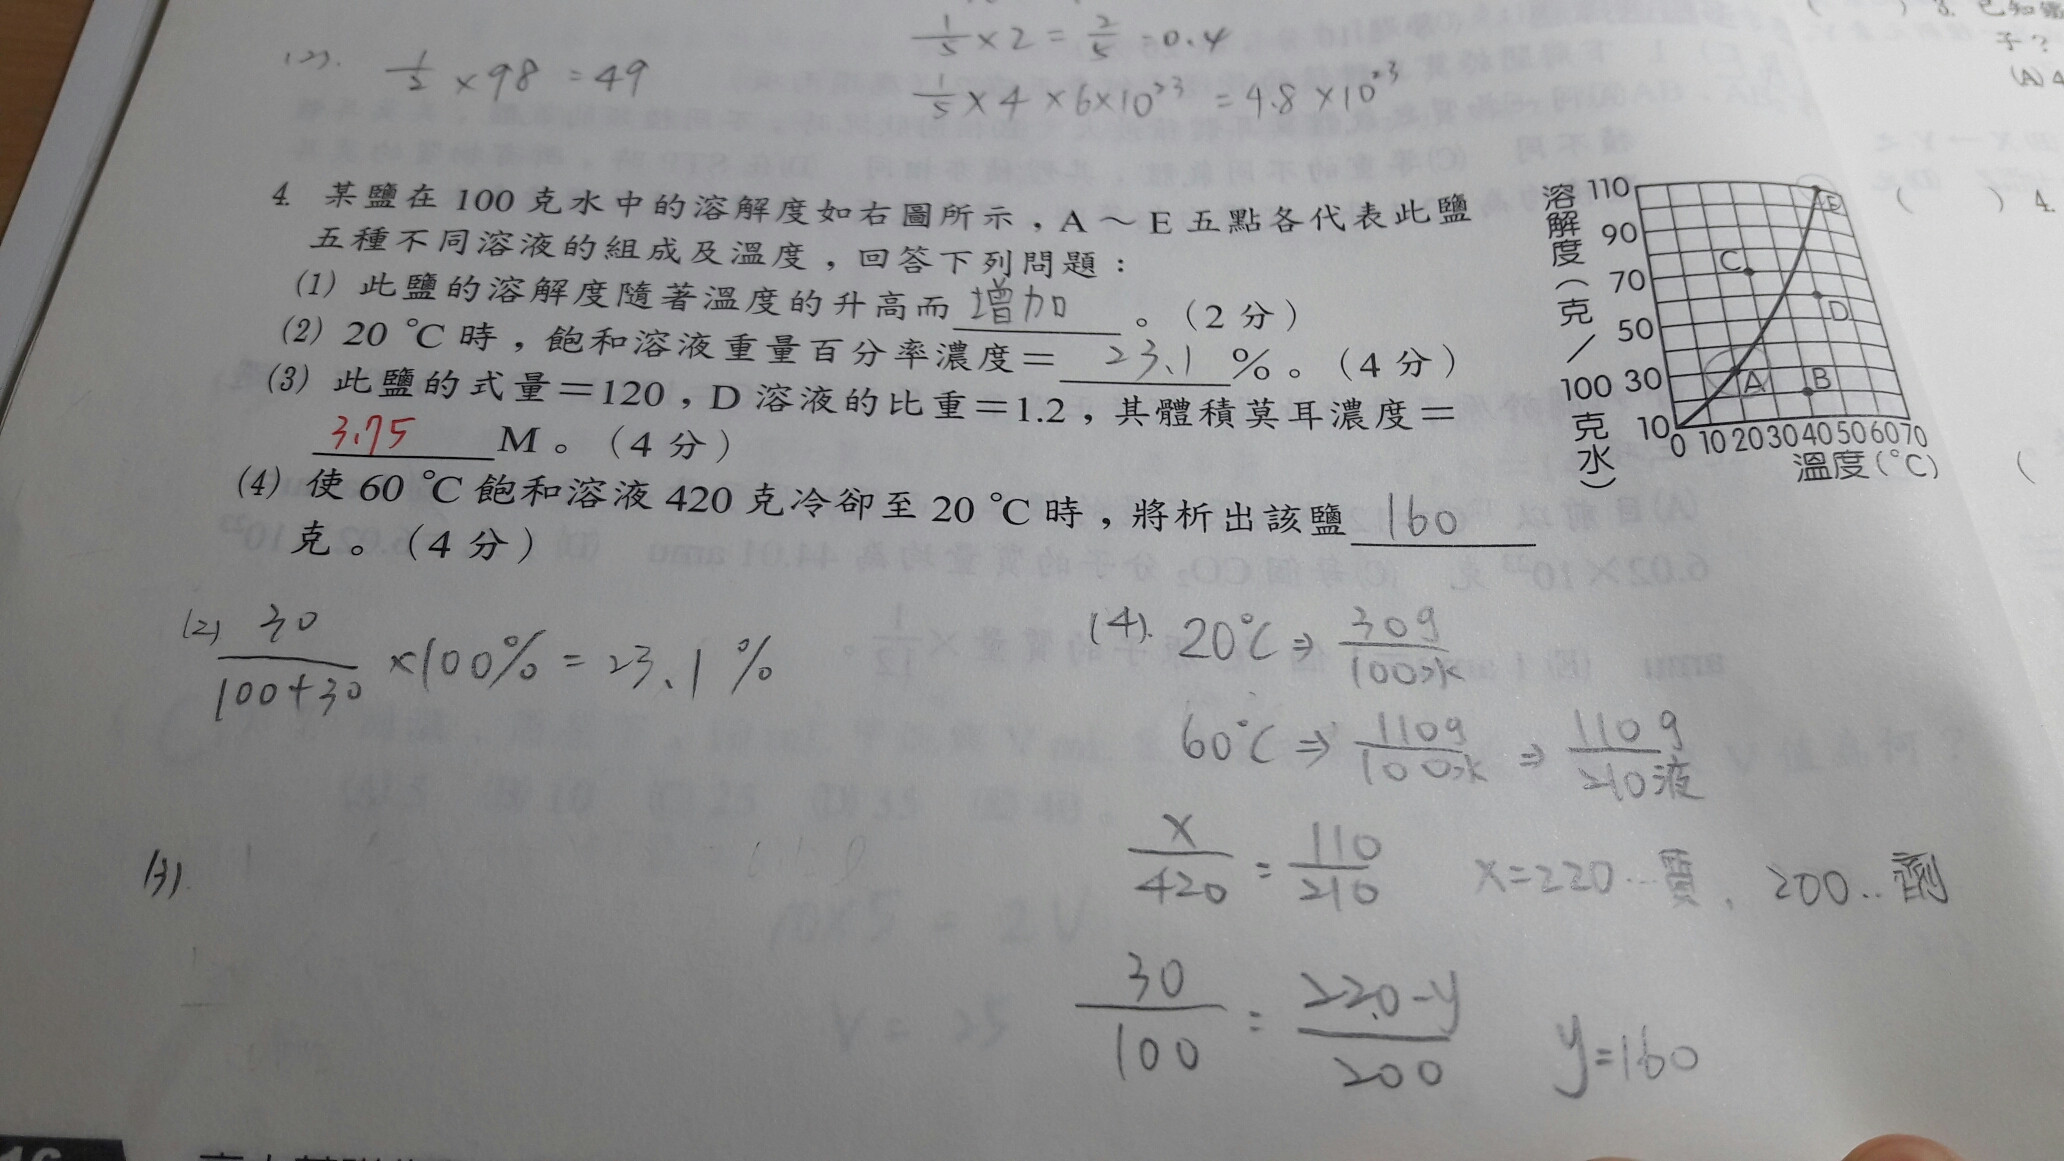 1/5 × 2 = 2/5 = 0.4
(2). 1/2 × 98 = 49
1/5 × 4 × 6×10²³ = 4.8 ×10²³
4. 某鹽在 100 克水中的溶解度如右圖所示，A～E 五點各代表此鹽
五種不同溶液的組成及溫度，回答下列問題：
(1) 此鹽的溶解度隨著溫度的升高而 增加 。（2 分）
(2) 20 ℃ 時，飽和溶液重量百分率濃度＝ 23.1 ％。（4 分）
(3) 此鹽的式量＝120，D 溶液的比重＝1.2，其體積莫耳濃度＝
3.75 M。（4 分）
(4) 使 60 ℃ 飽和溶液 420 克冷卻至 20 ℃ 時，將析出該鹽 160
克。（4 分）
溶解度（克／100克水）
110
90
70
50
30
10
E
C
D
A
B
0 10 20 30 40 50 60 70
溫度(℃)
3. 已知
子？
(A) 4
( ) 4.
(2) 30/(100+30) ×100% = 23.1 %
(4). 20℃ ⇒ 30g/100水
60℃ ⇒ 110g/100水 ⇒ 110g/210液
x/420 = 110/210 x=220…質, 200…劑
30/100 = (220-y)/200 y=160
(3).
16